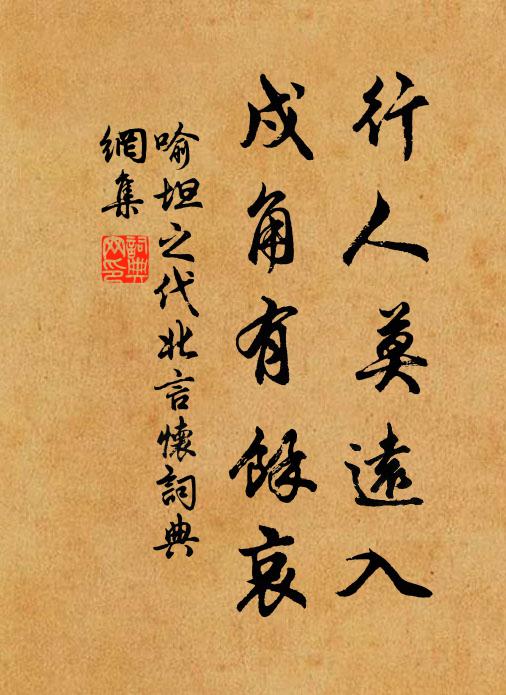 行人莫遠入
戍角有餘哀
喻坦之代北言懷詞典
網集
詞典
网印